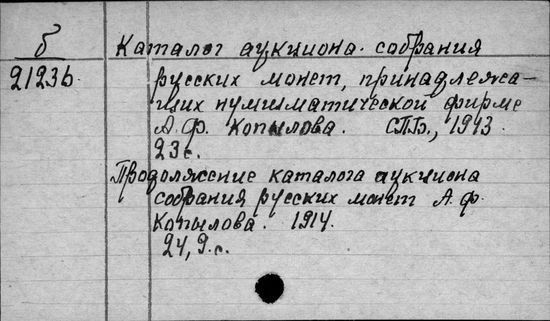 б
2123б
Каталог аукциона собрания
русских монет, принадлежа-
щих нумизматической фирме
А.Ф. Копылова. СПБ., 1913.
23с.
Продолжение каталога аукциона
собрания русских монет А.Ф.
Копылова. 1914.
24,9.с.